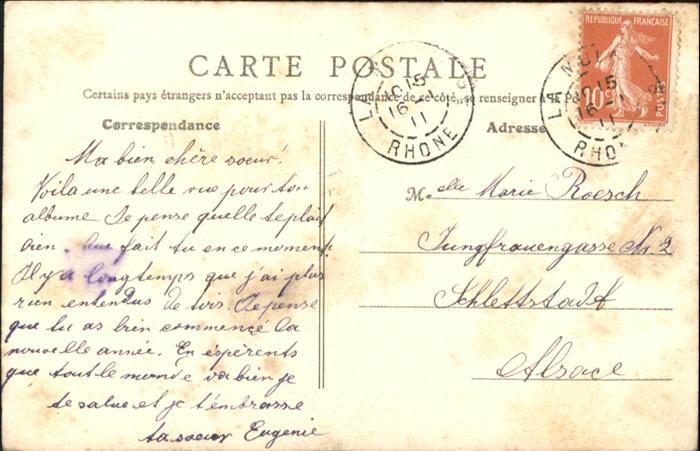 CARTE POSTALE
Certains pays étrangers n'acceptant pas la correspondance de ce côté, se renseigner à la Poste
Correspondance
Ma bien chère soeur!
Voila une belle vue pour ton
albume Je pense quelle te plait
bien. Que fait tu en ce moment
Il y a longtemps que j'ai plus
rien entendus de toi. Je pense
que tu as bien commencé la
nouvelle année. En éspérents
que tout le monde va bien je
te salue et je t'embrasse
ta soeur Eugenie
Adresse
Melle Marie Roesch
Jungfrauengasse Nr. 2
Schlettstadt
Alsace
REPUBLIQUE FRANÇAISE
10c
POSTES
15
16 -1
11
RHONE
LA
15
16 -1
11
RHONE